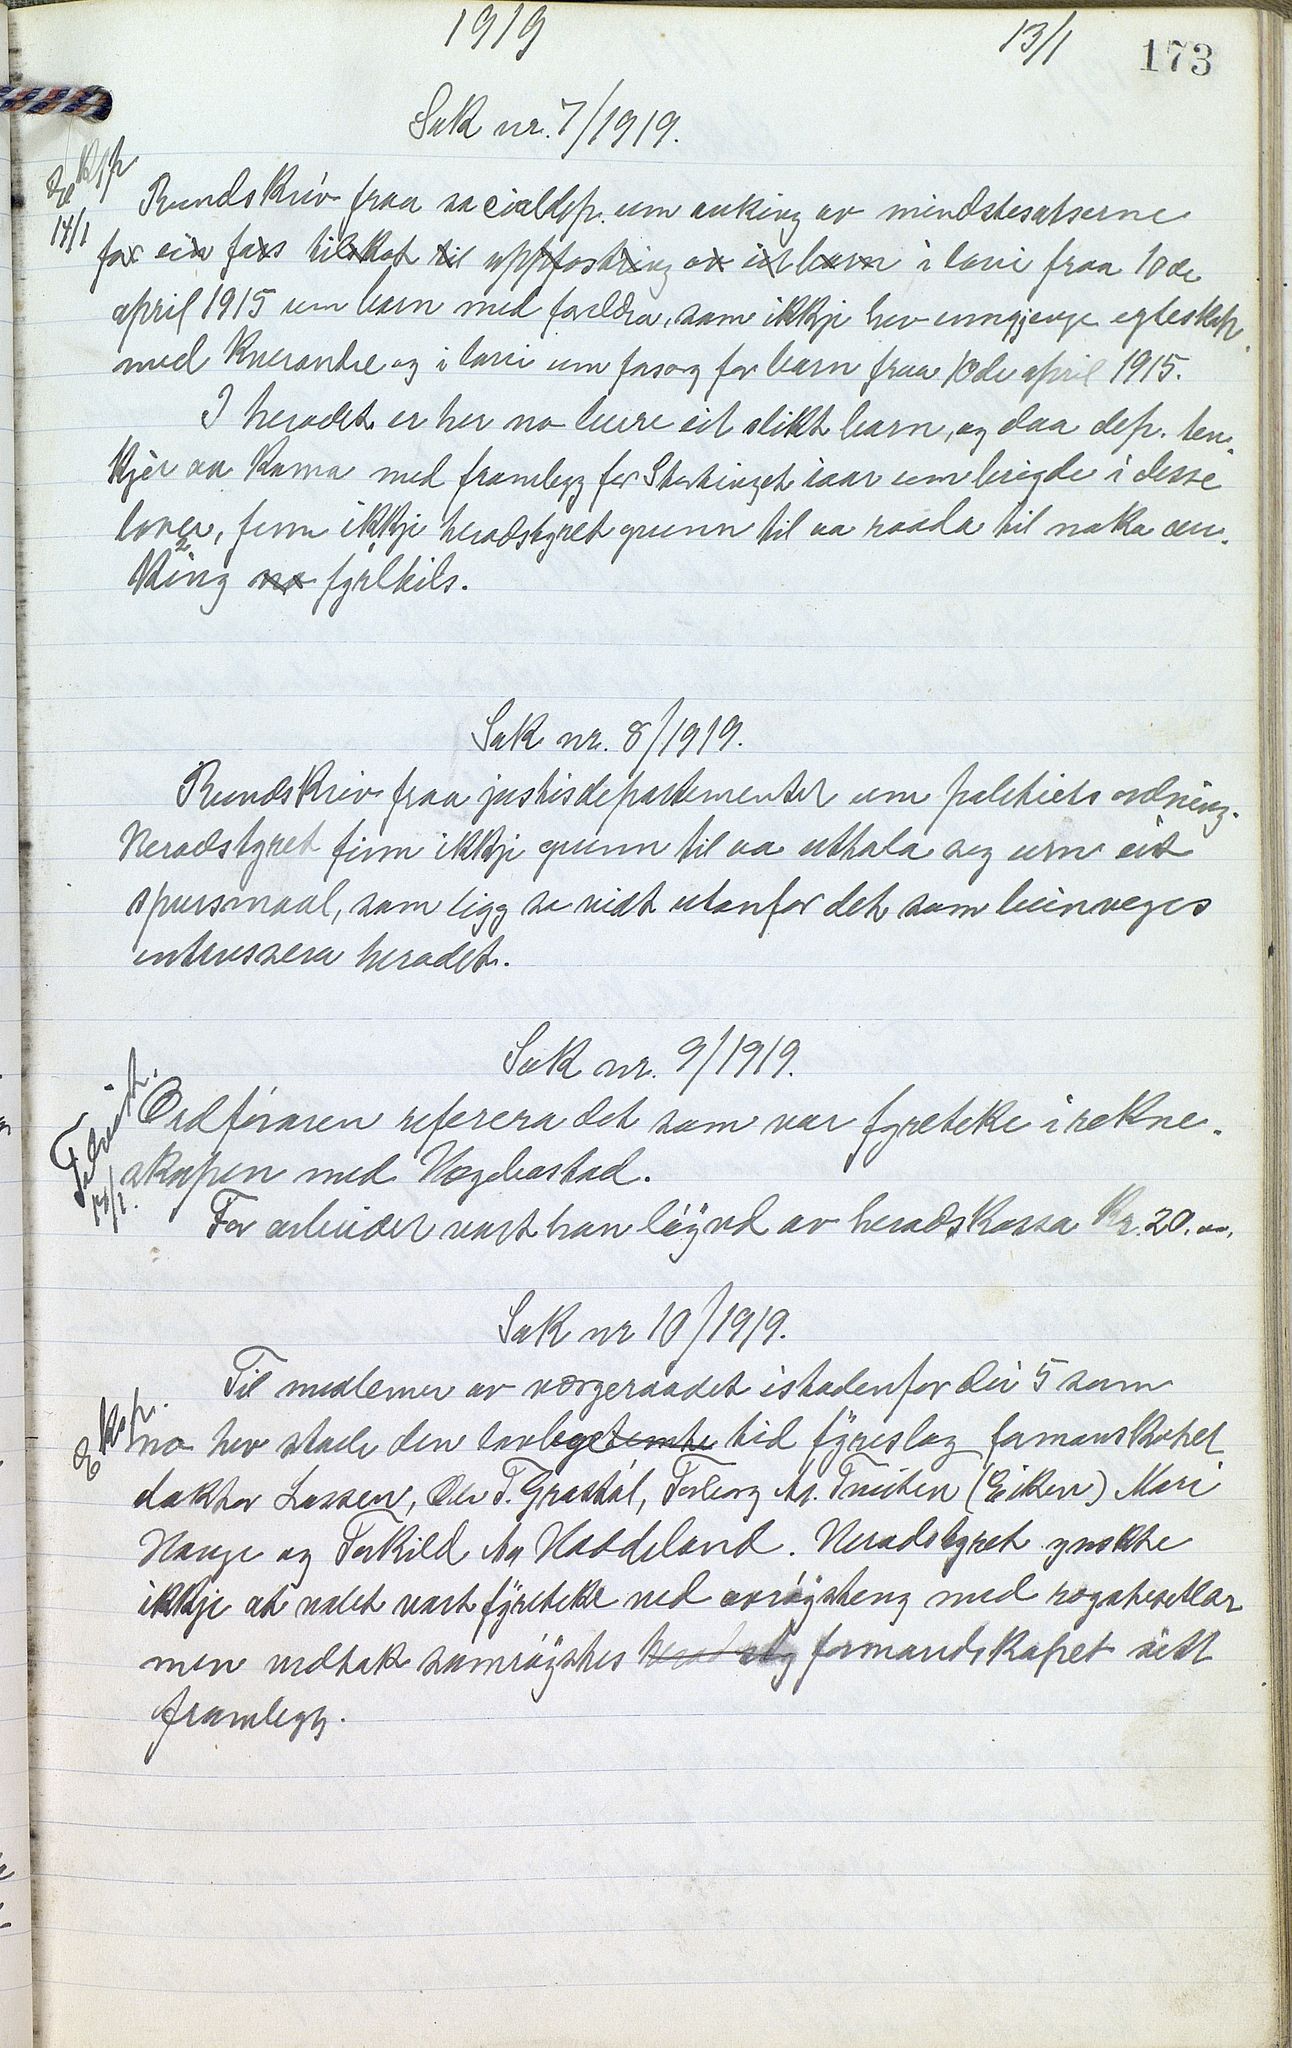 1919 13/1 173
Sak nr. 7/1919.
Eksp
14/1
Rundskriv fraa socialdep. um auking av mindstesatserne
for ein fars tilskot til uppfostring av eit barn i lovi fraa 10de
april 1915 um barn med foreldra, som ikkje hev inngjenge egteskap
med kverandre og i lovi um forsorg for barn fraa 10de april 1915.
I heradet er her no berre eit slikt barn, og daa dep. ten-
kjer aa koma med framlegg for Stortinget iaar um brigde i desse
lover, finn ikkje heradstyret grunn til aa raada til noka au-
king no fyrebils.
Sak nr. 8/1919.
Rundskriv fraa justisdepartementet um politiets ordning.
Heradstyret finn ikkje grunn til aa uttala seg um eit
spursmaal, som ligg so vidt utanfor det som beinveges
interessera heradet.
Sak nr. 9/1919.
Utskrift.
14/1.
Ordføraren referera det som var fyreteke i rekne-
skapen med Hægebostad.
For arbeidet vart han løynd av heradskassa kr. 20.00.
Sak nr 10/1919.
Eksp.
Til medlemer av værgeraadet istadenfor dei 5 som
no hev stade den lovbestemte tid fyreslog formanskapet
doktor Lassen, Ole T. Frastøl, Torborg M. Tveiten (Eiken) Mari
Hauge og Torkild Aa Haddeland. Heradstyret ynskte
ikkje at valet vart fyreteke ved avrøysteng med røystesetlar
men vedtok samrøystes heradsty formandskapet sitt
framlegg.